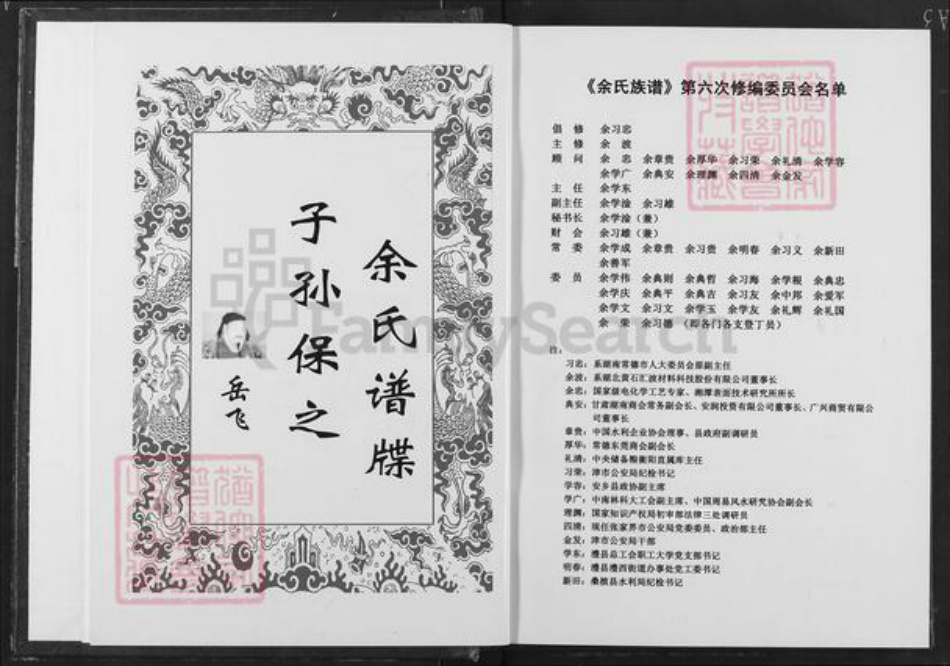 余氏谱牒
子孙保之
岳飞
FamilySearch
《余氏族谱》第六次修编委员会名单
倡 修 余习忠
主 修 余 波
顾 问 余 忠 余章贵 余厚华 余习荣 余礼清 余学容
余学广 余典安 余理渊 余四清 余金发
主 任 余学东
副主任 余学淦 余习雄
秘书长 余学淦（兼）
财 会 余习雄（兼）
常 委 余学成 余章贵 余习贵 余明春 余习义 余新田
余善军
委 员 余学伟 余典则 余典哲 余习海 余学概 余典忠
余学庆 余典平 余典吉 余习友 余中邦 余爱军
余学文 余习文 余学玉 余学友 余礼辉 余礼国
余 荣 余习德 （即各门各支登丁员）
注：
习忠：系湖南常德市人大委员会原副主任
余波：系湖北黄石汇波材料科技股份有限公司董事长
余忠：国家级电化学工艺专家、湘潭表面技术研究所所长
典安：甘肃湖南商会常务副会长、安润投资有限公司董事长、广兴商贸有限公
司董事长
章贵：中国水利企业协会理事、县政府副调研员
厚华：常德东莞商会副会长
礼清：中央储备粮衡阳直属库主任
习荣：津市公安局纪检书记
学容：安乡县政协副主席
学广：中南林科大工会副主席、中国周易风水研究协会副会长
理渊：国家知识产权局初审部法律三处调研员
四清：现任张家界市公安局党委委员、政治部主任
金发：津市公安局干部
学东：澧县总工会职工大学党支部书记
明春：澧县澧西街道办事处党工委书记
新田：桑植县水利局纪检书记